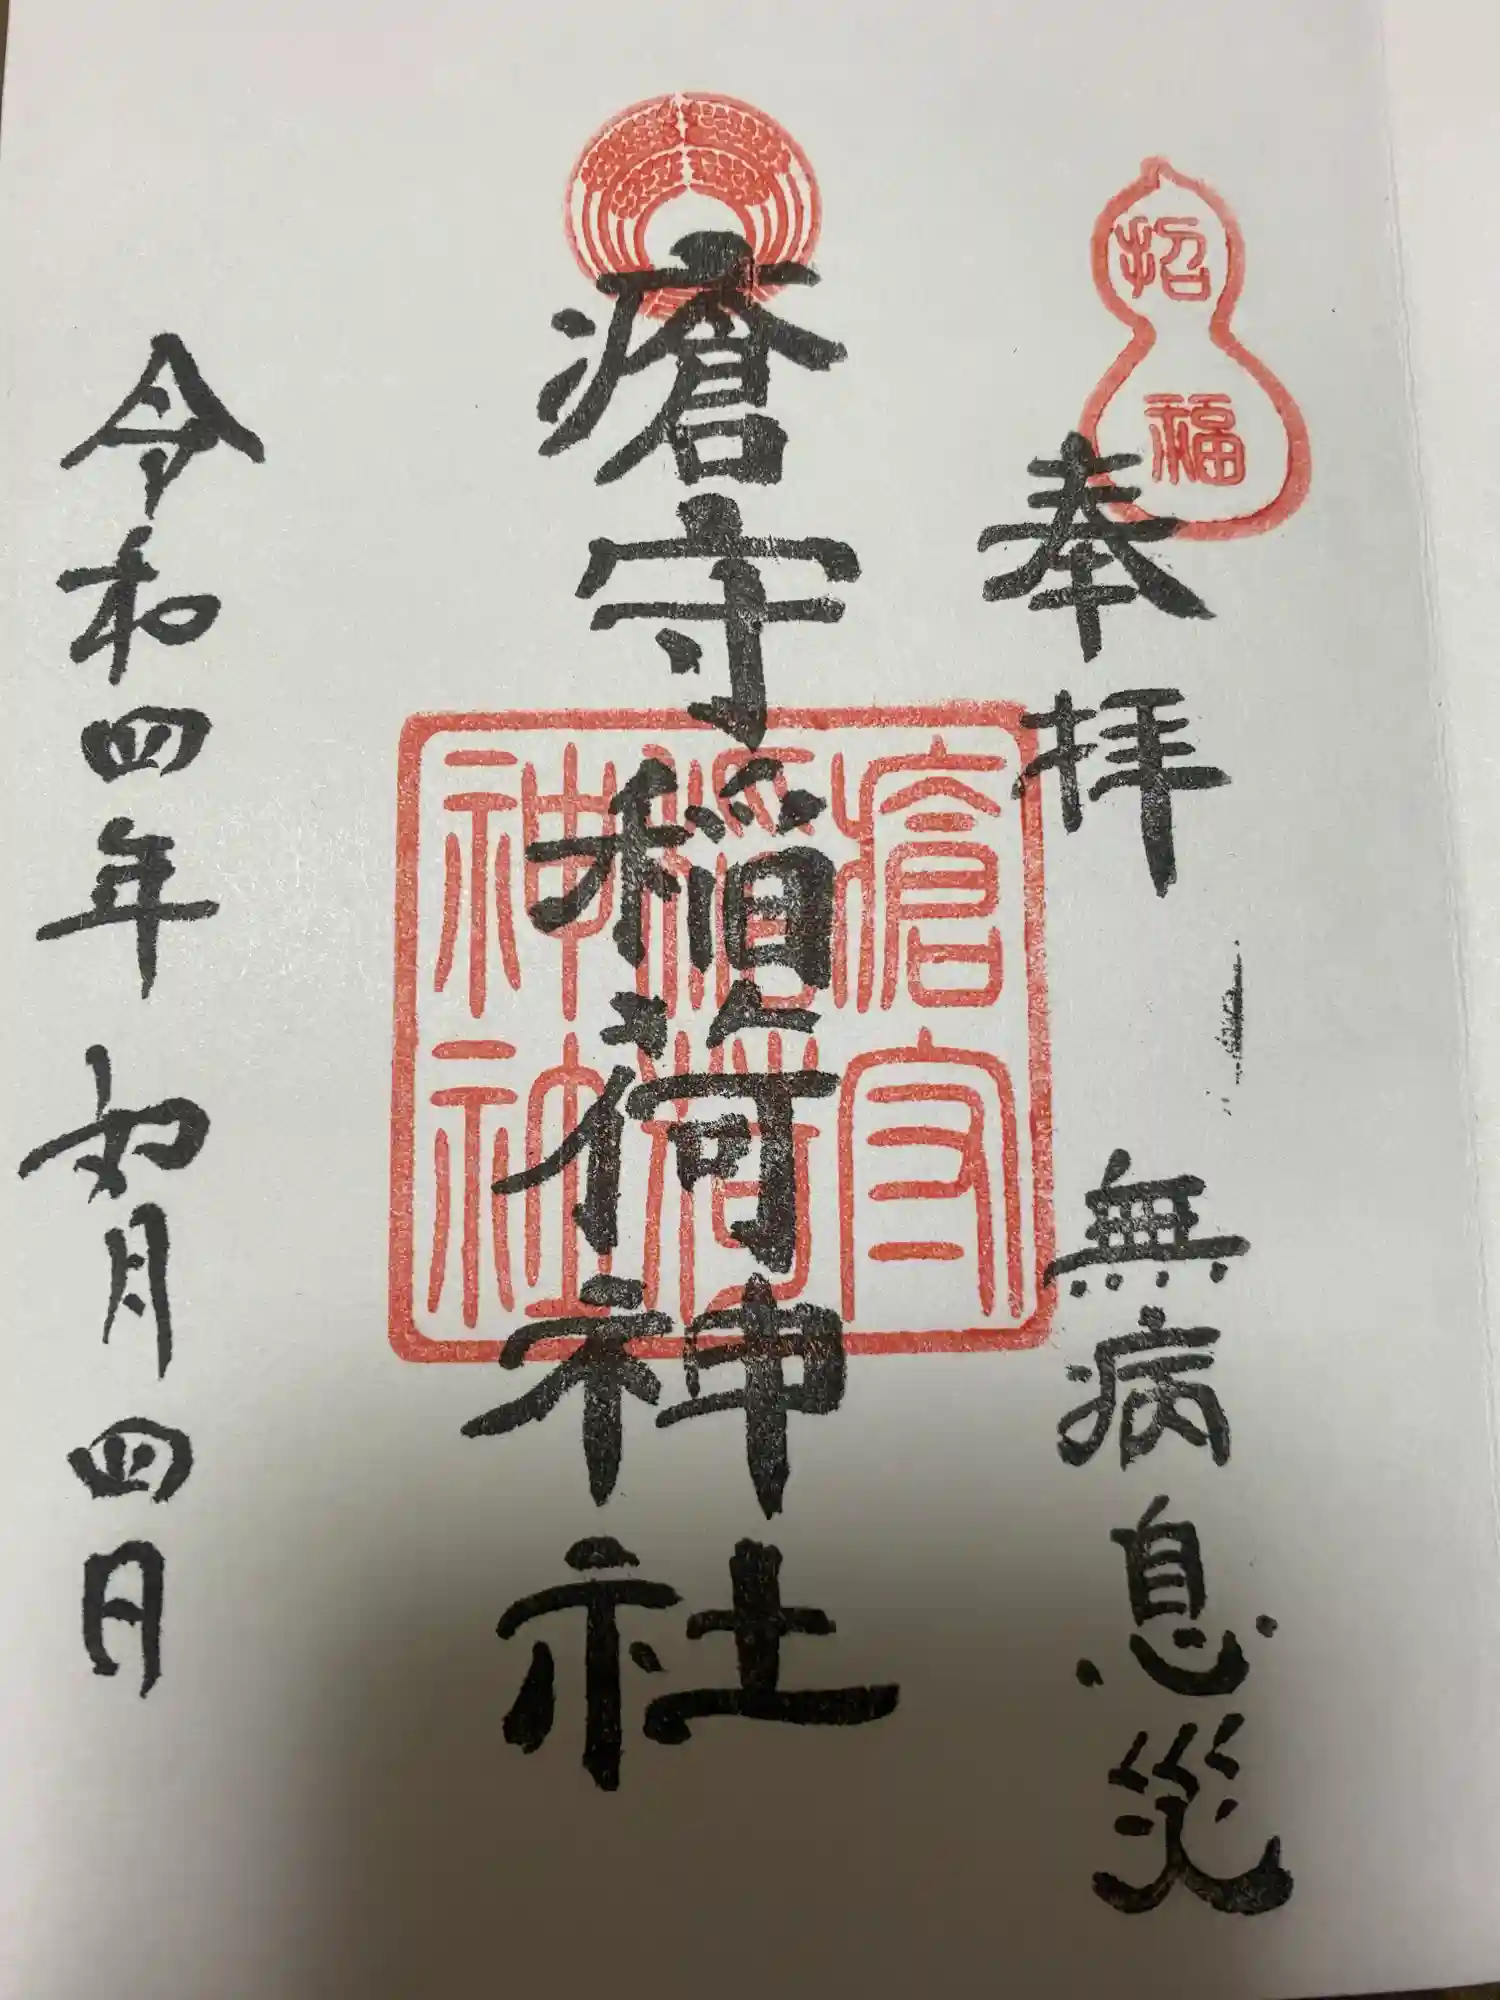 招福
奉拝 無病息災
瘡守稲荷神社
瘡守
稲荷
神社
令和四年如月四日